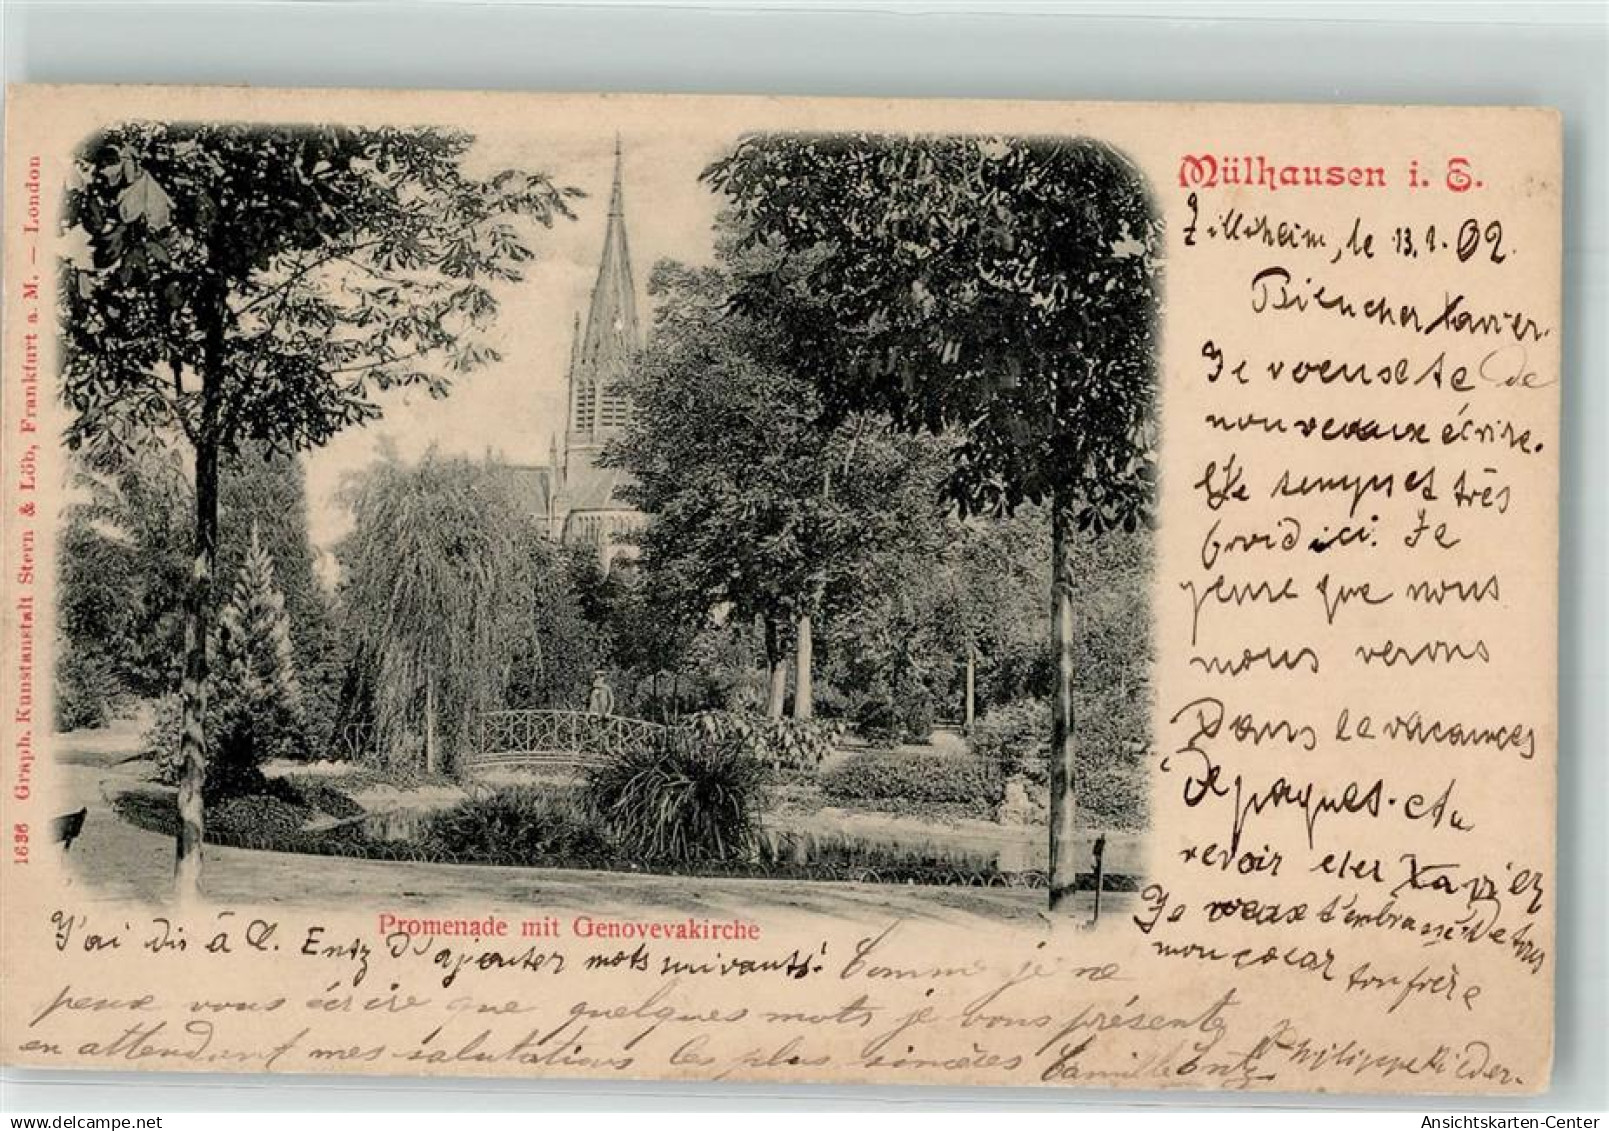 Mülhausen i. E.
Zillisheim, le 13. 1. 02.
Biencher Xavier.
Je voeuse te de
nouveaux écrire.
Le temps et très
froid ici. Je
pense que nous
nous verons
Dans le vacances
De paques. et au
revoir cher Xavier
Je veux t'embrassé De tous
mon coeur ton frère
Philippe Rider.
1636 Graph. Kunstanstalt Stern & Löb, Frankfurt a. M. — London
Promenade mit Genovevakirche
J'ai dis à C. Entz D'ajouter mots suivants:
Comme je ne
peux vous écrire que quelques mots je vous présente
en attendant mes salutations les plus sincères Camille Entz
Ansichtskarten-Center